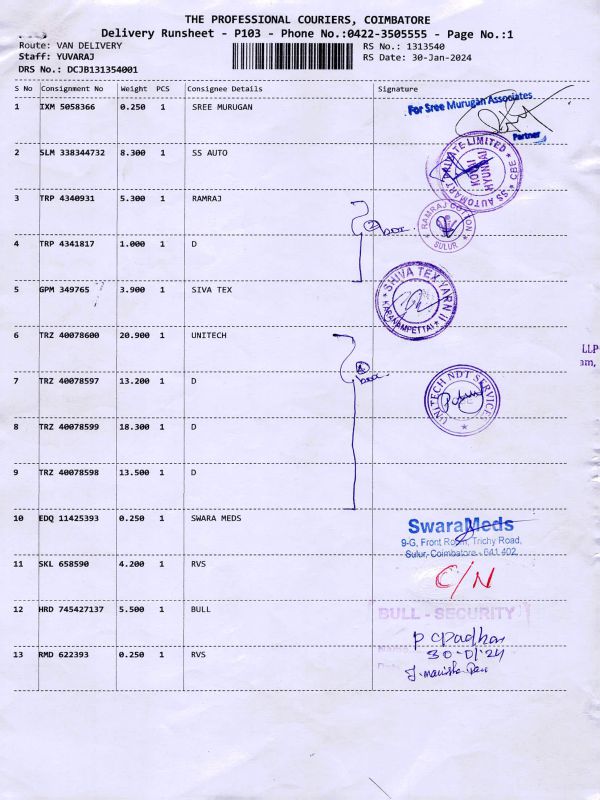 THE PROFESSIONAL COURIERS, COIMBATORE
Delivery Runsheet - P103 - Phone No.:0422-3505555 - Page No.:1
Route: VAN DELIVERY
RS No.: 1313540
Staff: YUVARAJ
RS Date: 30-Jan-2024
DRS No.: DCJB131354001
S No Consignment No Weight PCS Consignee Details Signature
1 IXM 5058366 0.250 1 SREE MURUGAN
For Sree Murugan Associates
Partner
2 SLM 338344732 8.300 1 SS AUTO
SS AUTOMART PRIVATE LIMITED * CBE *
HYUNDAI
3 TRP 4340931 5.300 1 RAMRAJ
RAMRAJ COTTON
SULUR
2 box
4 TRP 4341817 1.000 1 D
5 GPM 349765 3.900 1 SIVA TEX
SHIVA TEX YARN
KARANAMPETTAI
6 TRZ 40078600 20.900 1 UNITECH
LLP
am,
4 box
7 TRZ 40078597 13.200 1 D
UNITECH NDT SERVICE
8 TRZ 40078599 18.300 1 D
9 TRZ 40078598 13.500 1 D
10 EDQ 11425393 0.250 1 SWARA MEDS
SwaraMeds
9-G, Front Room, Trichy Road,
Sulur, Coimbatore - 641 402.
11 SKL 658590 4.200 1 RVS
C/N
12 HRD 745427137 5.500 1 BULL
BULL - SECURITY
P C Padhan
30-01-24
13 RMD 622393 0.250 1 RVS